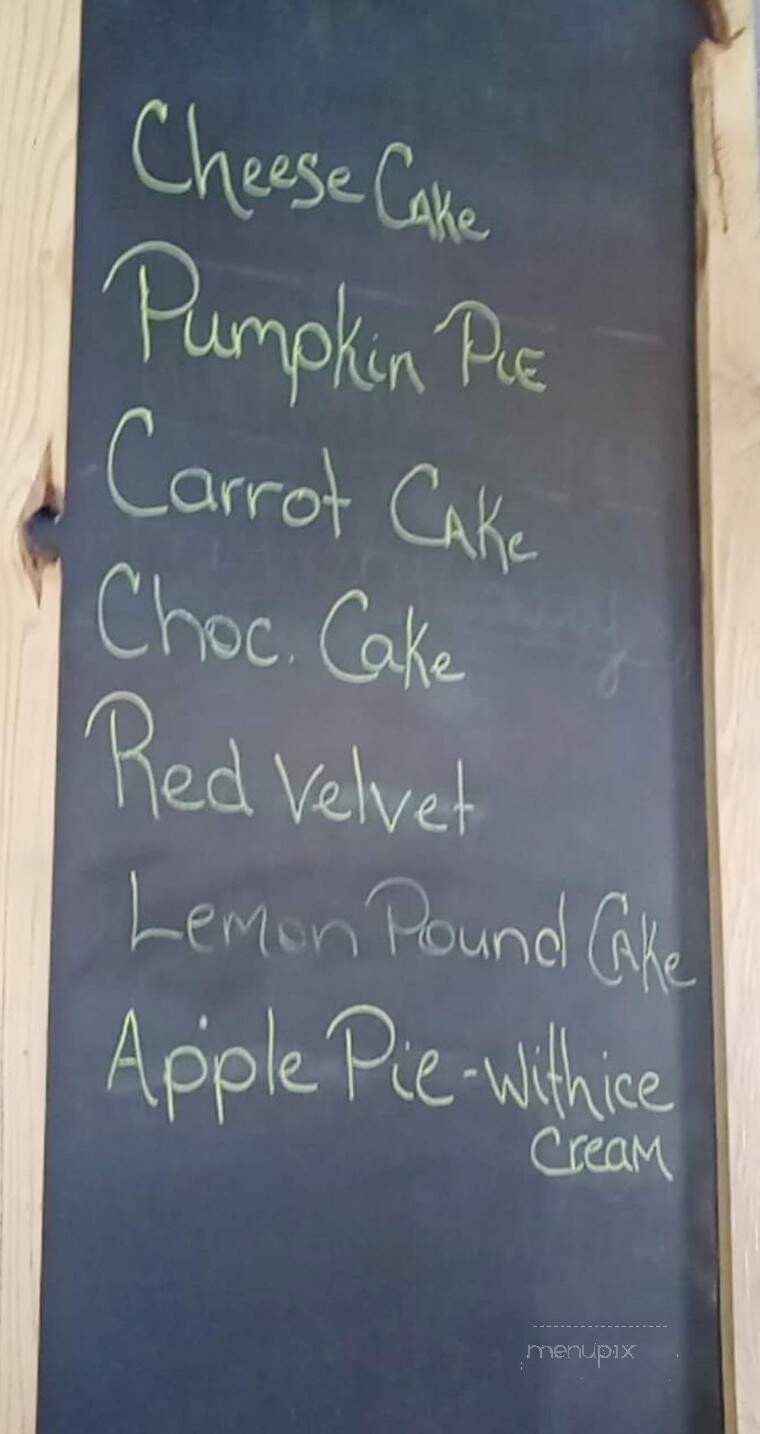 Cheese Cake
Pumpkin Pie
Carrot Cake
Choc. Cake
Red Velvet
Lemon Pound Cake
Apple Pie - with ice
cream
menupix